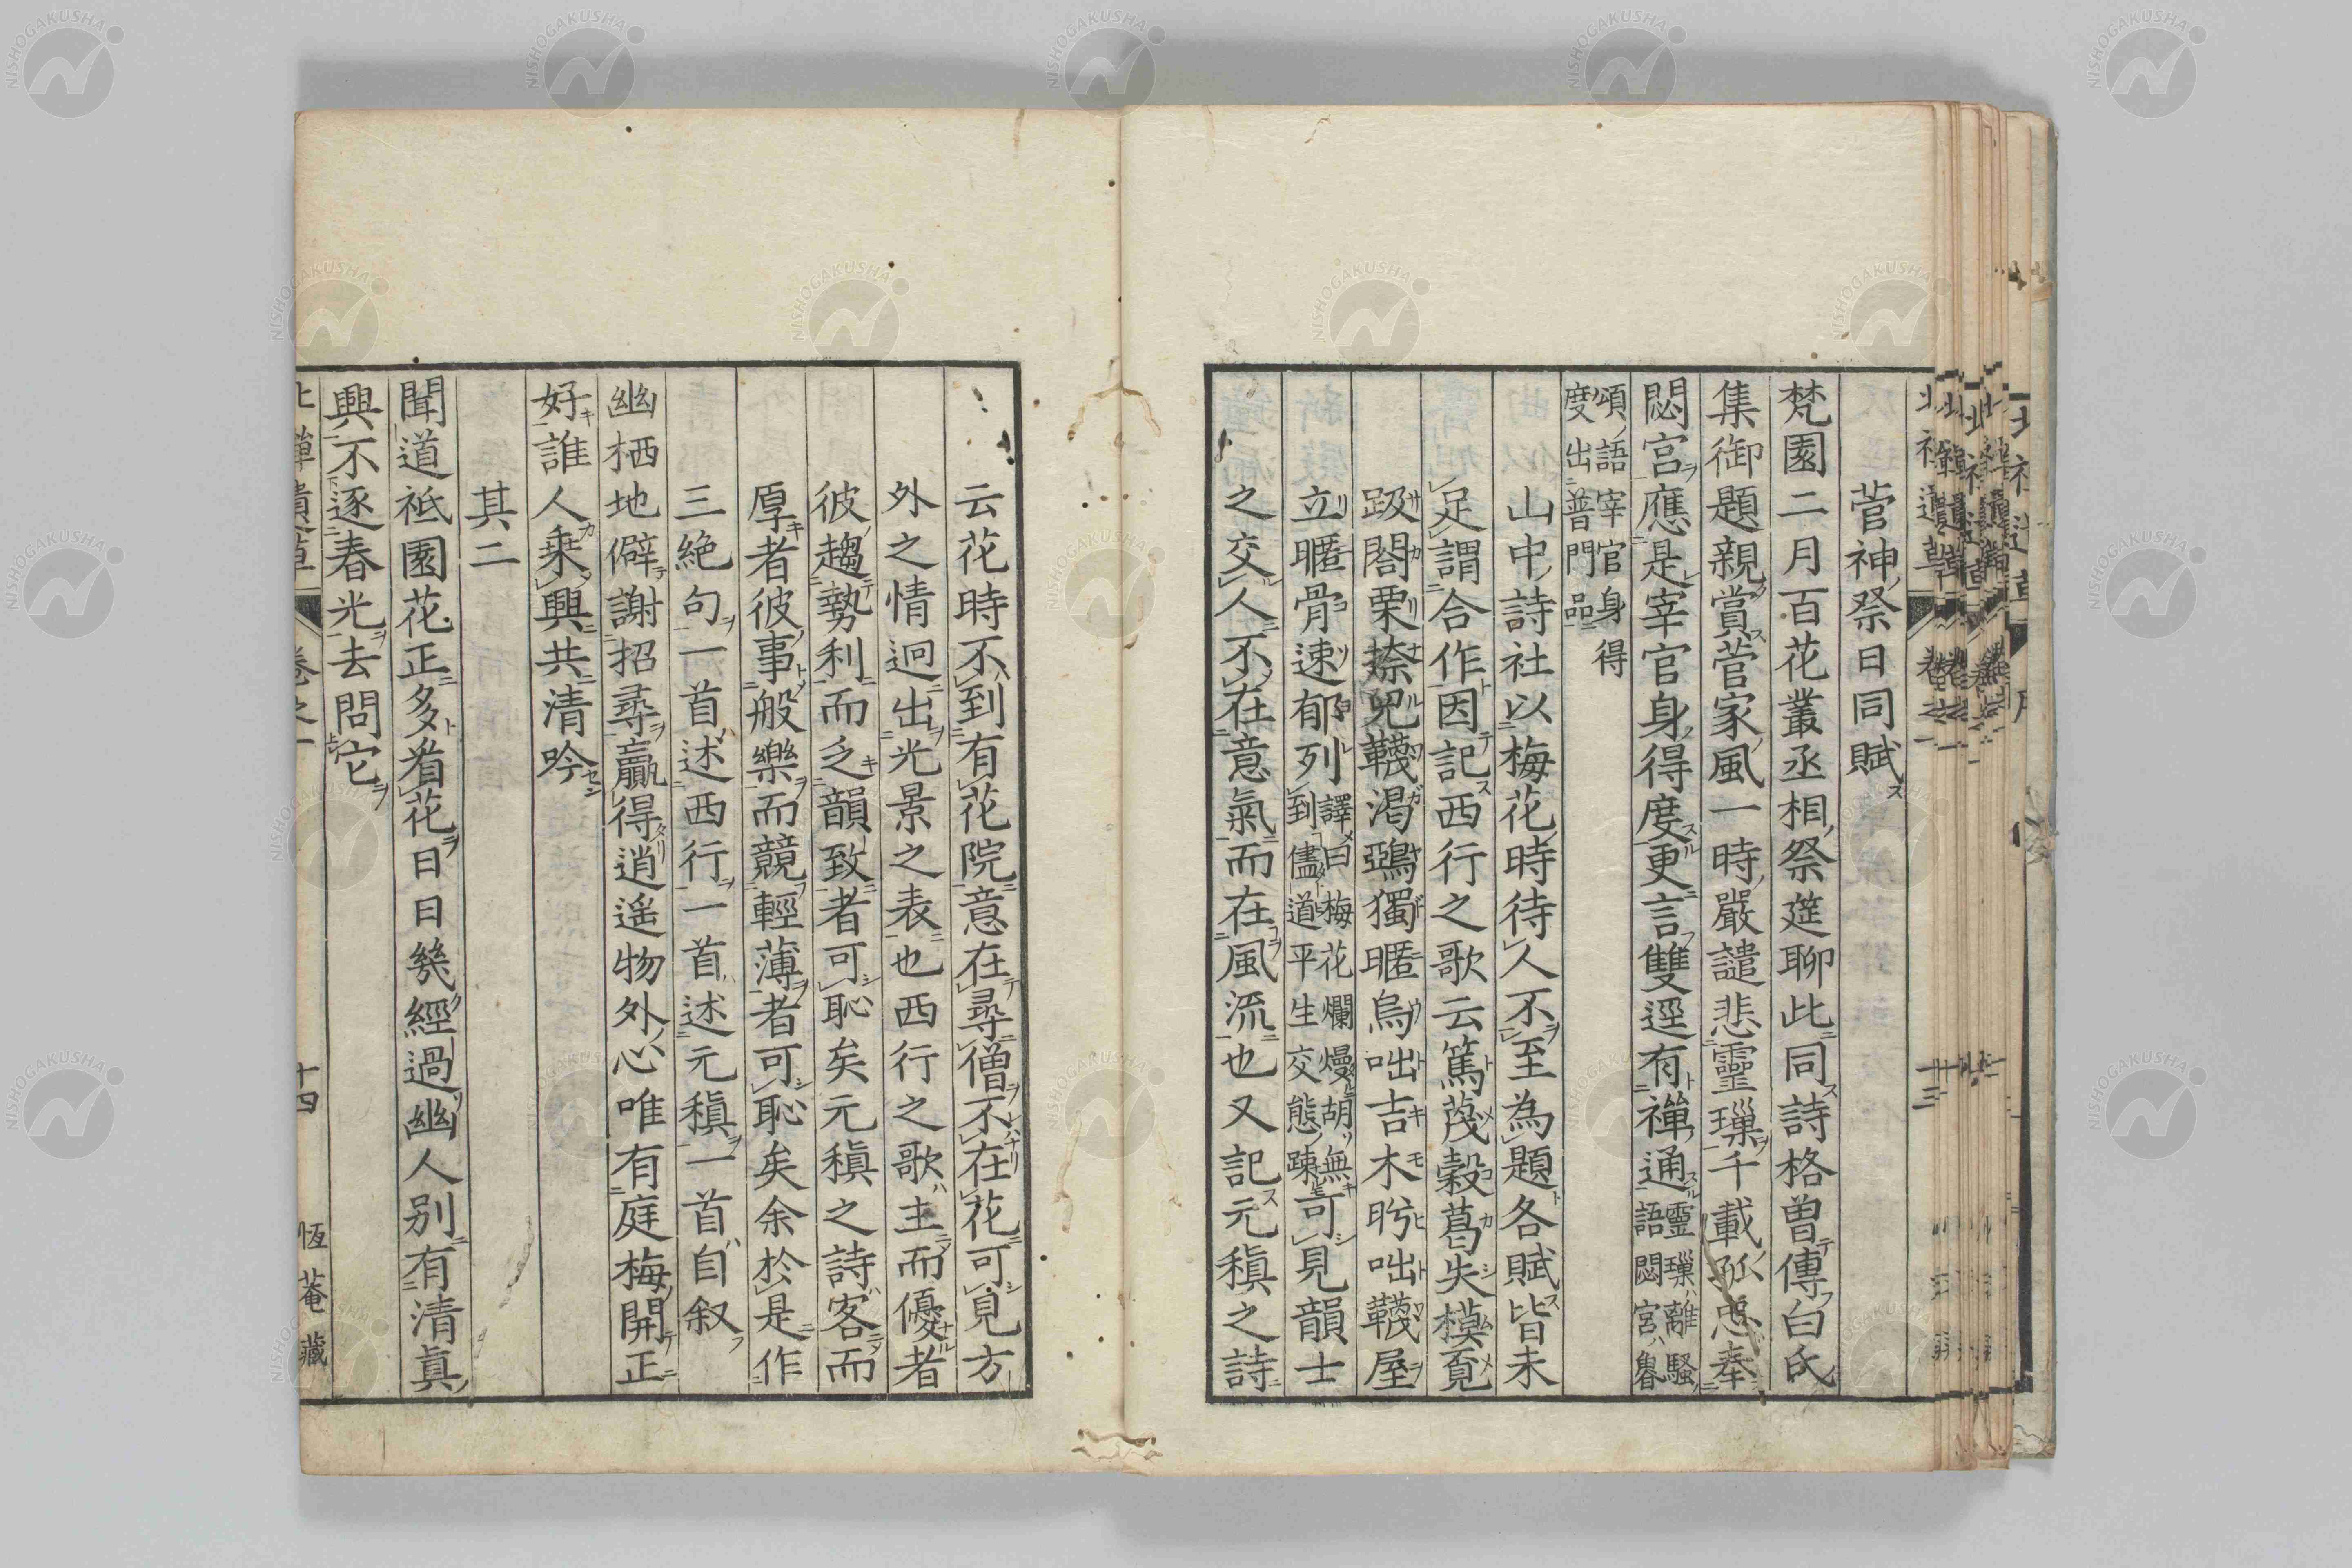 菅神祭日同賦
梵園二月百花叢丞相祭筵聊此同詩格曾傳白氏
集御題親賞菅家風一時嚴譴悲靈璅千載孤忠奉
閟宮應是宰官身得度更言雙逕有禪通靈璅離騷
語閟宮魯
頌語宰官身得
度出普門品
山中詩社以梅花時待人不至為題各賦皆未
足謂合作因記西行之歌云篤茂穀葛失模覓
趿閤栗捺兒韈渇鵶獨暱烏咄吉木肹咄韈屋
立暱骨速郁列譯曰梅花爛熳胡無
到儘道平生交態踈可見韻士
之交人不在意氣而在風流也又記元稹之詩
云花時不到有花院意在尋僧不在花可見方
外之情迥出光景之表也西行之歌主而優者
彼趨勢利而乏韻致者可恥矣元稹之詩客而
厚者彼事般樂而競輕薄者可恥矣余於是作
三絶句一首述西行一首述元稹一首自叙
幽栖地僻謝招尋贏得逍遥物外心唯有庭梅開正
好誰人乗興共清吟
其二
聞道祇園花正多看花日日幾經過幽人別有清眞
興不逐春光去問它
北禪遺草 卷之一 十四 恆菴藏
NISHOGAKUSHA